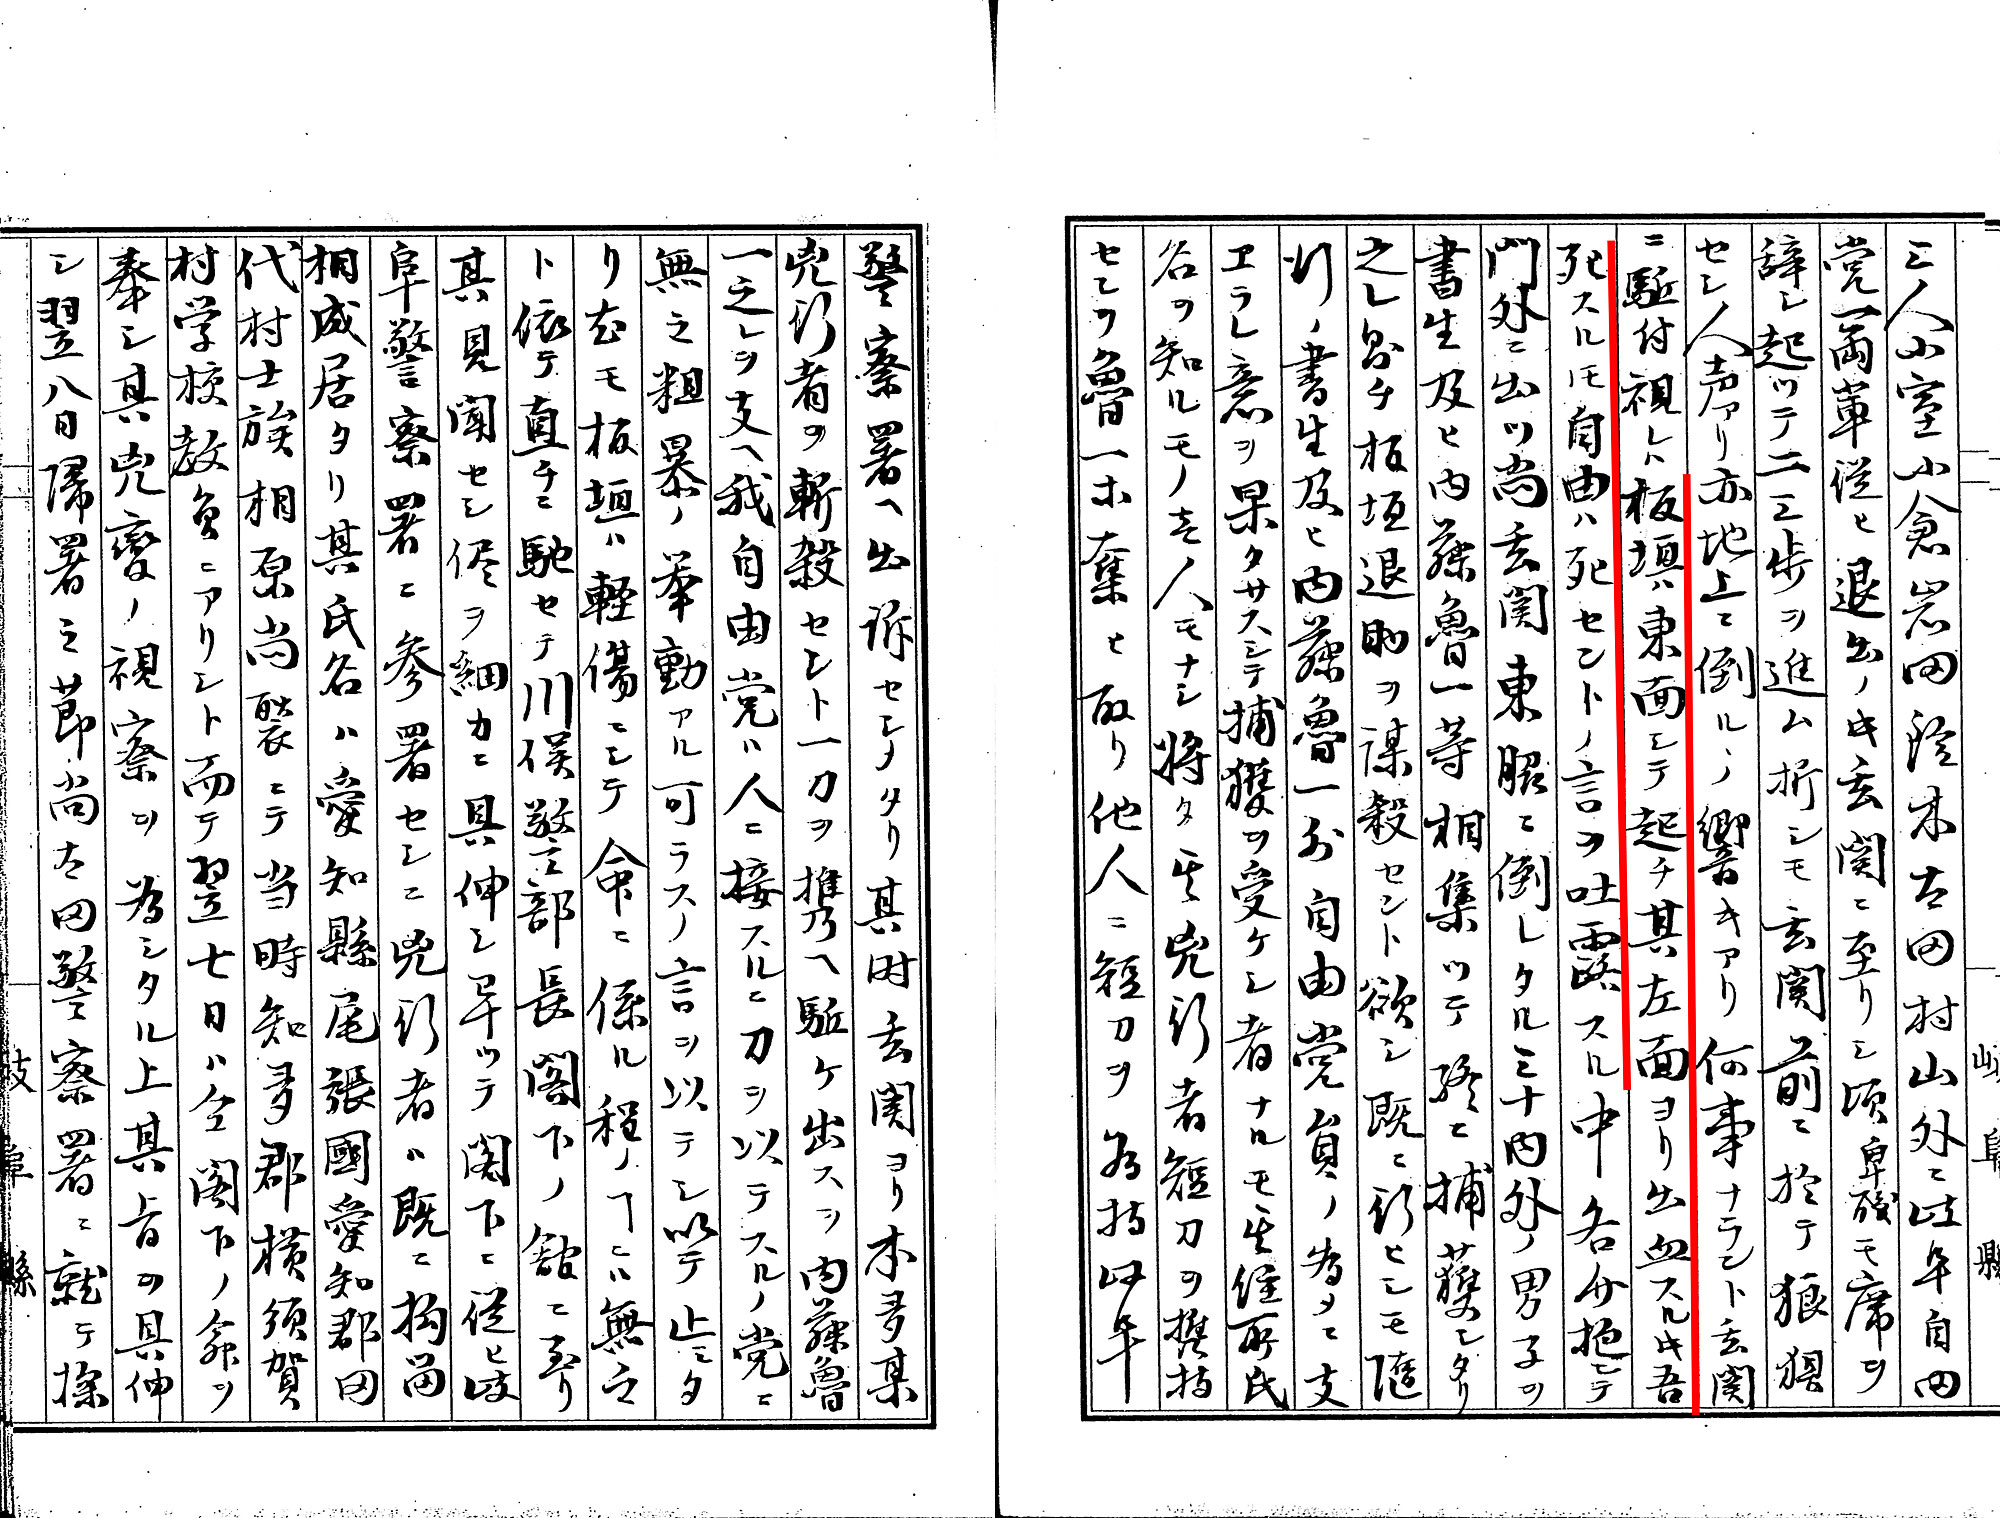 三ノ人小室小倉岩田詮木古田村山外ニ岐阜自由
党両輩従ヒ退出ノ比玄関ニ至リシ頃卑磯モ席ヲ
辞シ起ツテ二三歩ヲ進ム折シモ玄関前ニ於テ狼狽
セシ人声アリ亦地上ニ倒ルヽノ響キアリ何事ナラント玄関
ニ駈付視レト板垣ハ東面シテ起チ其左面ヨリ出血スル比吾
死スルモ自由ハ死セントノ言ヲ吐露スル中各分抱シテ
門外ニ出ツ尚玄関東脇ニ倒レタル三十内外ノ男子ヲ
書生及ヒ内藤魯一等相集ツテ終ニ捕獲シタリ
之レ則チ板垣退助ヲ謀殺セント欲シ既ニ行ヒシモ随
行ノ書生及ヒ内藤魯一外自由党員ノ為メニ支
ヱラレ意ヲ果タサスシテ捕獲ヲ受ケシ者ナルモ其住所氏
名ヲ知ルモノ壱人モナシ将タ其兇行者短刀ヲ携持
セシヲ魯一ホ奪ヒ取リ他人ニ短刀ヲ為持岐阜
警察署ヘ出訴セシメタリ其時玄関ヨリ本多某
兇行者ヲ斬殺セント一刀ヲ携ヘ駈ケ出スヲ内藤魯
一之レヲ支ヘ我自由党ハ人ニ接スルニ刀ヲ以テスルノ党ニ
無之粗暴ノ挙動アル可ラスノ言ヲ以テシ以テ止ミタ
リ尤モ板垣ハ軽傷ニシテ命ニ係ル程ノヿニハ無之
ト依テ直チニ馳セテ川俣警部長閣下ノ館ニ至リ
其見聞セシ侭ヲ細カニ具伸シ早ツテ閣下ニ従ヒ岐
阜警察署ニ参署セシニ兇行者ハ既ニ拘留
相成居タリ其氏名ハ愛知縣尾張國愛知郡田
代村士族相原尚褧ニテ当時知多郡横須賀
村学校教員ニアリシト而テ翌七日ハ全閣下ノ命ヲ
奉シ其兇変ノ視察ヲ為シタル上其旨ヲ具伸
シ翌八日帰署之節尚古田警察署ニ就テ探
岐阜縣
岐阜縣